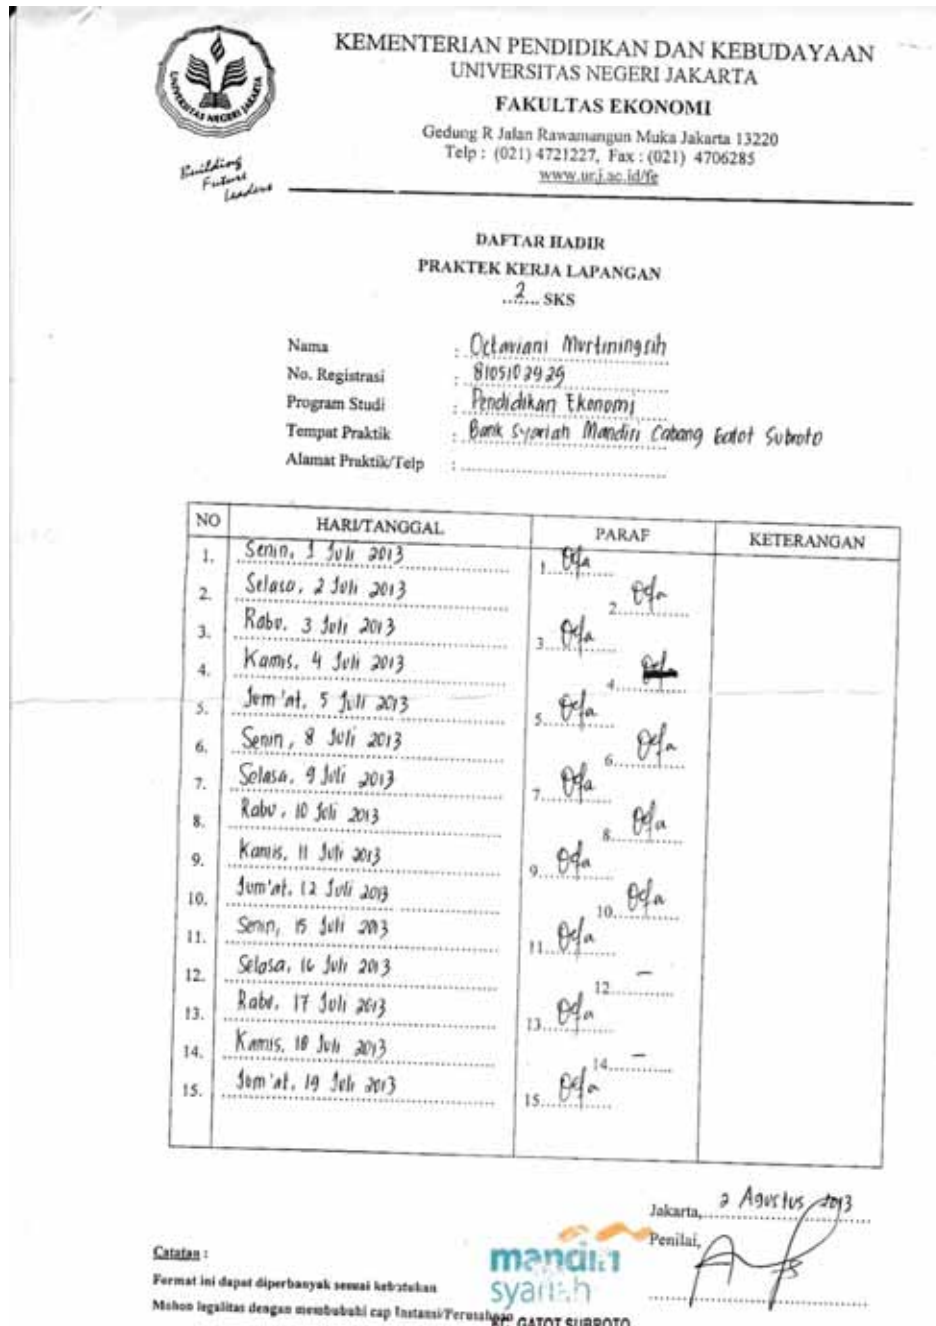 KEMENTERIAN PENDIDIKAN DAN KEBUDAYAAN
UNIVERSITAS NEGERI JAKARTA
FAKULTAS EKONOMI
Gedung R Jalan Rawamangun Muka Jakarta 13220
Telp : (021) 4721227, Fax : (021) 4706285
www.unj.ac.id/fe
UNIVERSITAS NEGERI JAKARTA
Building
Future
Leaders
DAFTAR HADIR
PRAKTEK KERJA LAPANGAN
...2... SKS
Nama : Octaviani Murtiningsih
No. Registrasi : 8105103929
Program Studi : Pendidikan Ekonomi
Tempat Praktik : Bank Syariah Mandiri Cabang Gatot Subroto
Alamat Praktik/Telp :
NO HARI/TANGGAL PARAF KETERANGAN
1. Senin, 1 Juli 2013 1.
2. Selasa, 2 Juli 2013 2.
3. Rabu, 3 Juli 2013 3.
4. Kamis, 4 Juli 2013 4.
5. Jum'at, 5 Juli 2013 5.
6. Senin, 8 Juli 2013 6.
7. Selasa, 9 Juli 2013 7.
8. Rabu, 10 Juli 2013 8.
9. Kamis, 11 Juli 2013 9.
10. Jum'at, 12 Juli 2013 10.
11. Senin, 15 Juli 2013 11.
12. Selasa, 16 Juli 2013 12. -
13. Rabu, 17 Juli 2013 13.
14. Kamis, 18 Juli 2013 14. -
15. Jum'at, 19 Juli 2013 15.
Jakarta, 2 Agustus 2013
Penilai,
Catatan :
Format ini dapat diperbanyak sesuai kebutuhan
Mohon legalitas dengan membubuhi cap Instansi/Perusahaan
mandiri
syariah
KC. GATOT SUBROTO